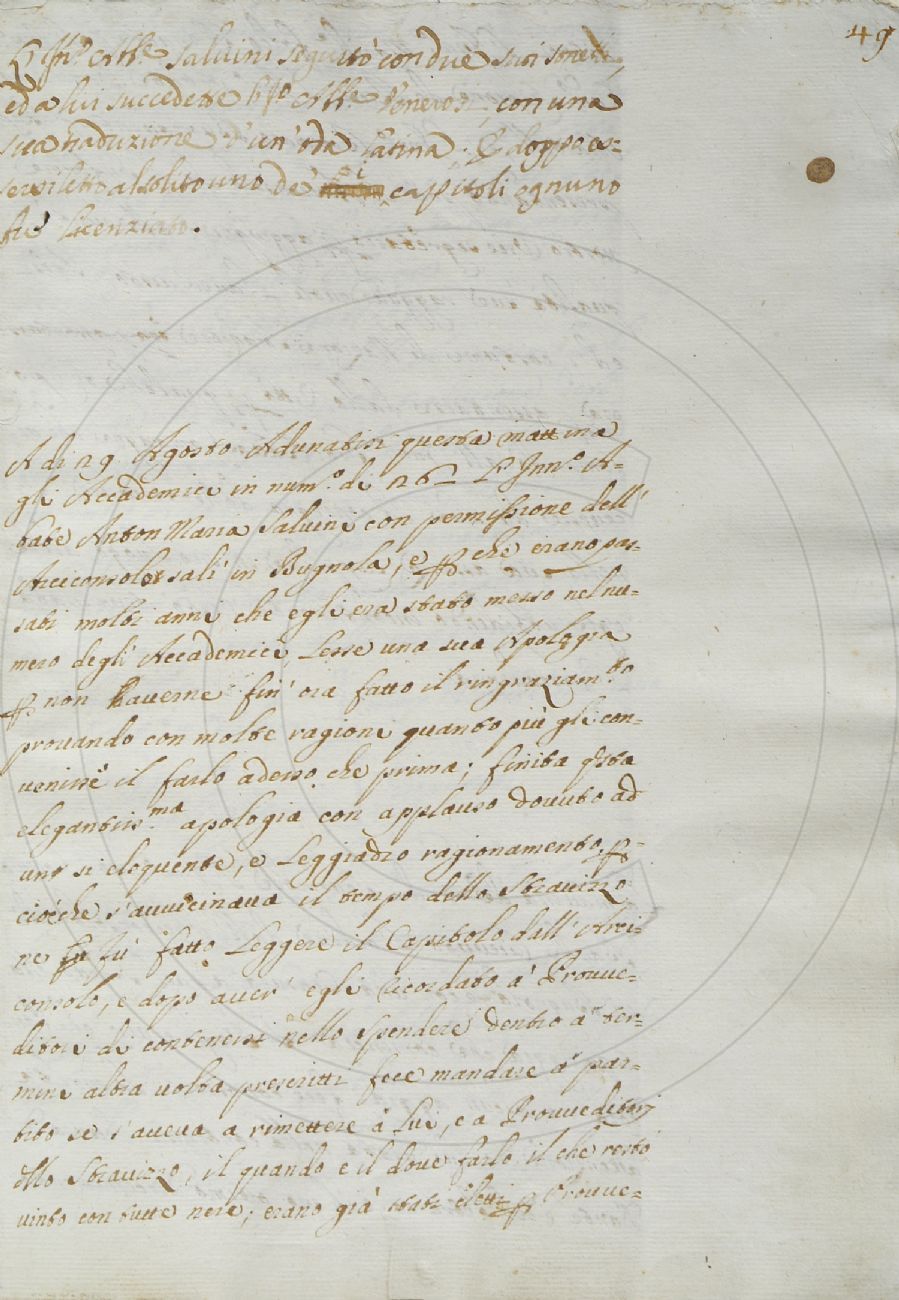 49
Salvini seguitò con due suoi sonetti,
ed a lui succedette con una
sua traduzione d'un' oda latina; E doppo es=
sersi letto al solito uno de' capitoli ognuno
fù licenziato.
A di 29 Agosto Adunatisi questa mattina
gli Accademici in num.o di 26 L'Inn.o A=
bate Anton Maria Salvini con permissione dell'
Arciconsolo salì in Bugnola, e p che erano pas=
sati molti anni che egli era stato messo nel nu=
mero degli Accademici, Lesse una sua Apologia
p non haverne fin' ora fatto il ringraziam.to
provando con molte ragioni quanto più gli con=
venisse il farlo adesso che prima; finita q.sta
elegantiss.ma apologia con applauso dovuto ad
uno si eloquente, e Leggiadro ragionamento, p=
cioche s'avvicinava il tempo dello Stravizzo
ne fù fatto Leggere il Capitolo dall' Arci=
consolo, e dopo aver egli ricordato a' Provve=
ditori di contenersi nello spendere dentro a' ter=
mini altra volta prescritti fece mandare a' par=
tito se s'aveva a rimettere a Lui, e a Provveditori
dllo Stravizzo, il quando e il dove farlo, il che restò
vinto con tutte nere; erano già stati eletti p Provve=